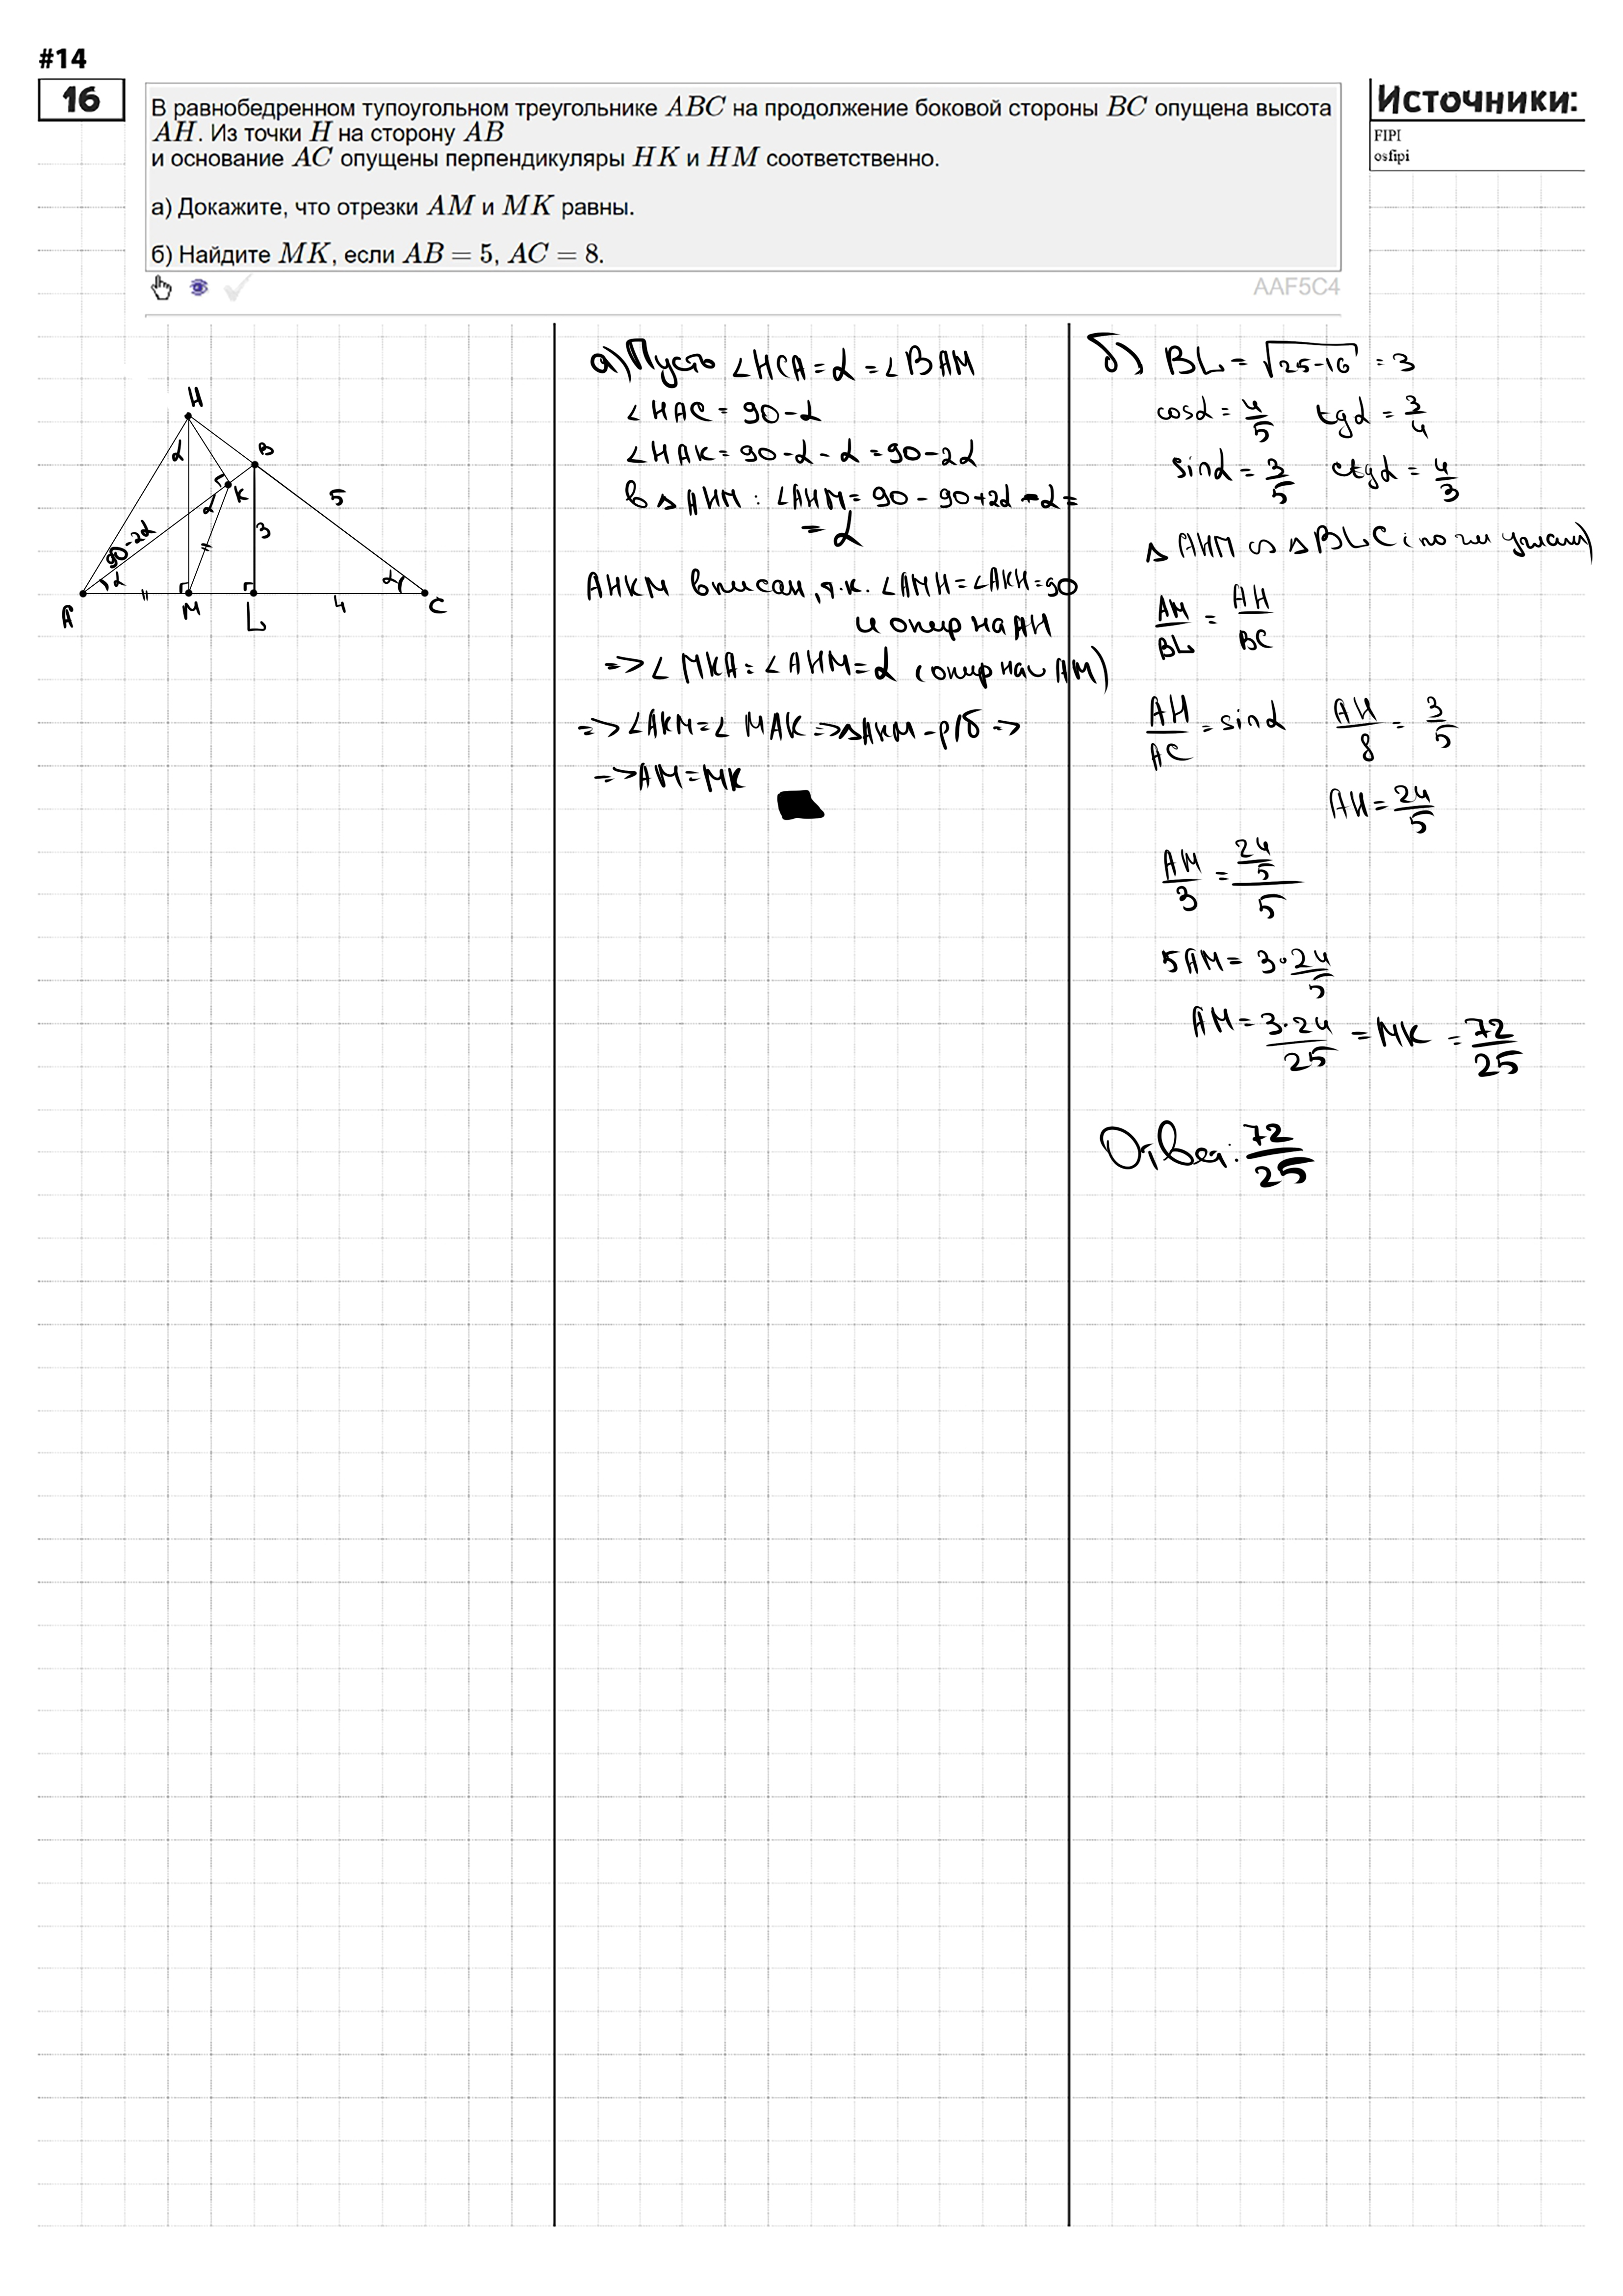 #14
16
В равнобедренном тупоугольном треугольнике ABC на продолжение боковой стороны BC опущена высота
AH. Из точки H на сторону AB
и основание AC опущены перпендикуляры HK и HM соответственно.
а) Докажите, что отрезки AM и MK равны.
б) Найдите MK, если AB = 5, AC = 8.
AAF5C4
Источники:
FIPI
osfipi
H
α
B
K
5
α
3
90-2α
α
"
=
α
A
M
L
4
C
а) Пусть ∠HCA = α = ∠BAM
∠HAC = 90-α
∠HAK = 90-α-α = 90-2α
в △AHM: ∠AHM = 90-90+2α-α=
= α
AHKM вписан, т.к. ∠AMH=∠AKH=90
и опир на AH
=> ∠MKA=∠AHM=α (опир на ∪ AM)
=> ∠AKM=∠MAK => △AKM - р/б =>
=> AM=MK
б) BL = √25-16 = 3
cosα = 4/5 tgα = 3/4
sinα = 3/5 ctgα = 4/3
△AHM ∽ △BLC (по 2м углам)
AM/BL = AH/BC
AH/AC = sinα AH/8 = 3/5
AH = 24/5
AM/3 = 24/5/5
5AM = 3·24/5
AM = 3·24/25 = MK = 72/25
Ответ: 72/25